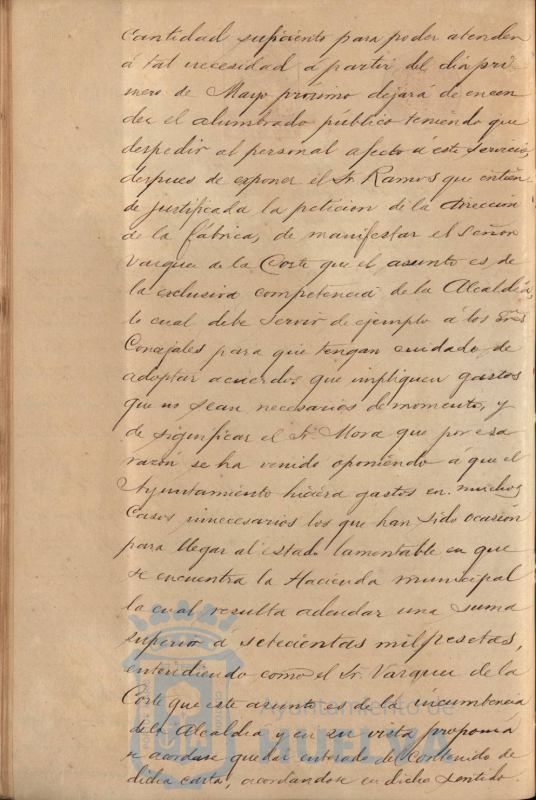 cantidad suficiente para poder atender
á tal necesidad á partir del dia pri
mero de Mayo próximo dejará de encen
der el alumbrado público teniendo que
despedir al personal afecto á este servicio,
despues de exponer el Sr. Ramos que entien
de justificada la peticion de la direccion
de la fábrica, de manifestar el Señor
Vazquez de la Corte que el asunto es de
la exclusiva competencia de la Alcaldía,
lo cual debe servir de ejemplo á los Sres
Concejales para que tengan cuidado de
adoptar acuerdos que impliquen gastos
que no sean necesarios de momento, y
de significar el Sr. Mora que por esa
razón se ha venido oponiendo á que el
Ayuntamiento hiciera gastos en muchos
casos innecesarios los que han sido ocasión
para llegar al estado lamentable en que
se encuentra la Hacienda municipal
la cual resulta adeudar una suma
superior á setecientas mil pesetas,
entendiendo como el Sr. Vazquez de la
Corte que este asunto es de la incumbencia
de la Alcaldia y en su vista proponia
se acordase quedar enterado del contenido de
dicha carta, acordandose en dicho sentido.
Ayuntamiento de
HUELVA